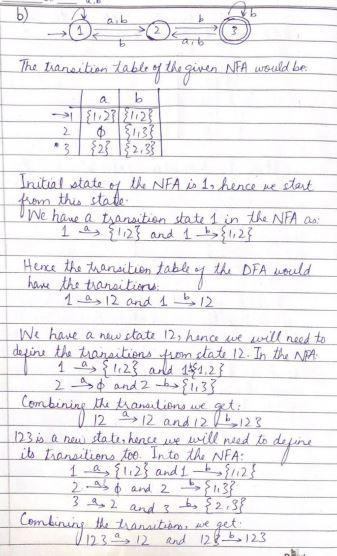 a,b
b) 1 a,b b 2 b a,b 3 b
The transition table of the given NFA would be.
a b
→1 {1,2} {1,2}
2 ϕ {1,3}
*3 {2} {2,3}
Initial state of the NFA is 1, hence we start
from this state.
We have a transition state 1 in the NFA as:
1 a→ {1,2} and 1 b→ {1,2}
Hence the transition table of the DFA would
have the transitions:
1 a→ 12 and 1 b→ 12
We have a new state 12, hence we will need to
define the transitions from state 12. In the NFA:
1 a→ {1,2} and 1 b→ {1,2}
2 a→ ϕ and 2 b→ {1,3}
Combining the transitions we get:
12 a→ 12 and 12 b→ 123
123 is a new state, hence we will need to define
its transitions too. In to the NFA:
1 a→ {1,2} and 1 b→ {1,2}
2 a→ ϕ and 2 b→ {1,3}
3 a→ 2 and 3 b→ {2,3}
Combining the transitions, we get:
123 a→ 12 and 123 b→ 123